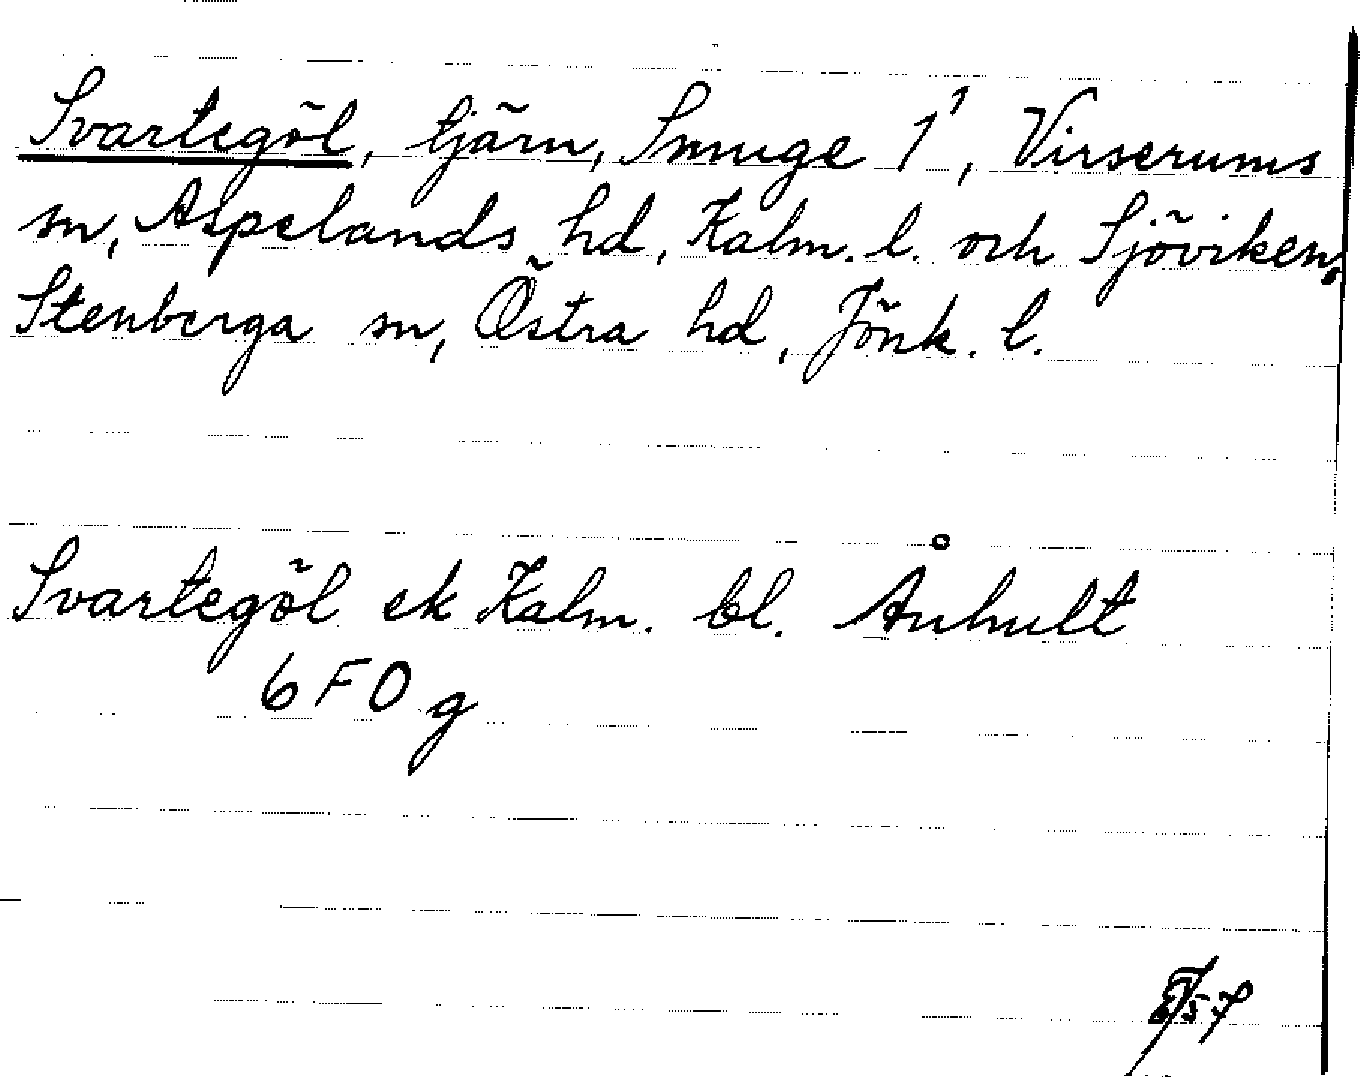 Svartegöl, tjärn, Smuge 1¹, Virserums
sn, Aspelands hd, Kalm. l. och Sjöviken,
Stenberga sn, Östra hd, Jönk. l.
Svartegöl ek Kalm. bl. Åuhult
6 F O g